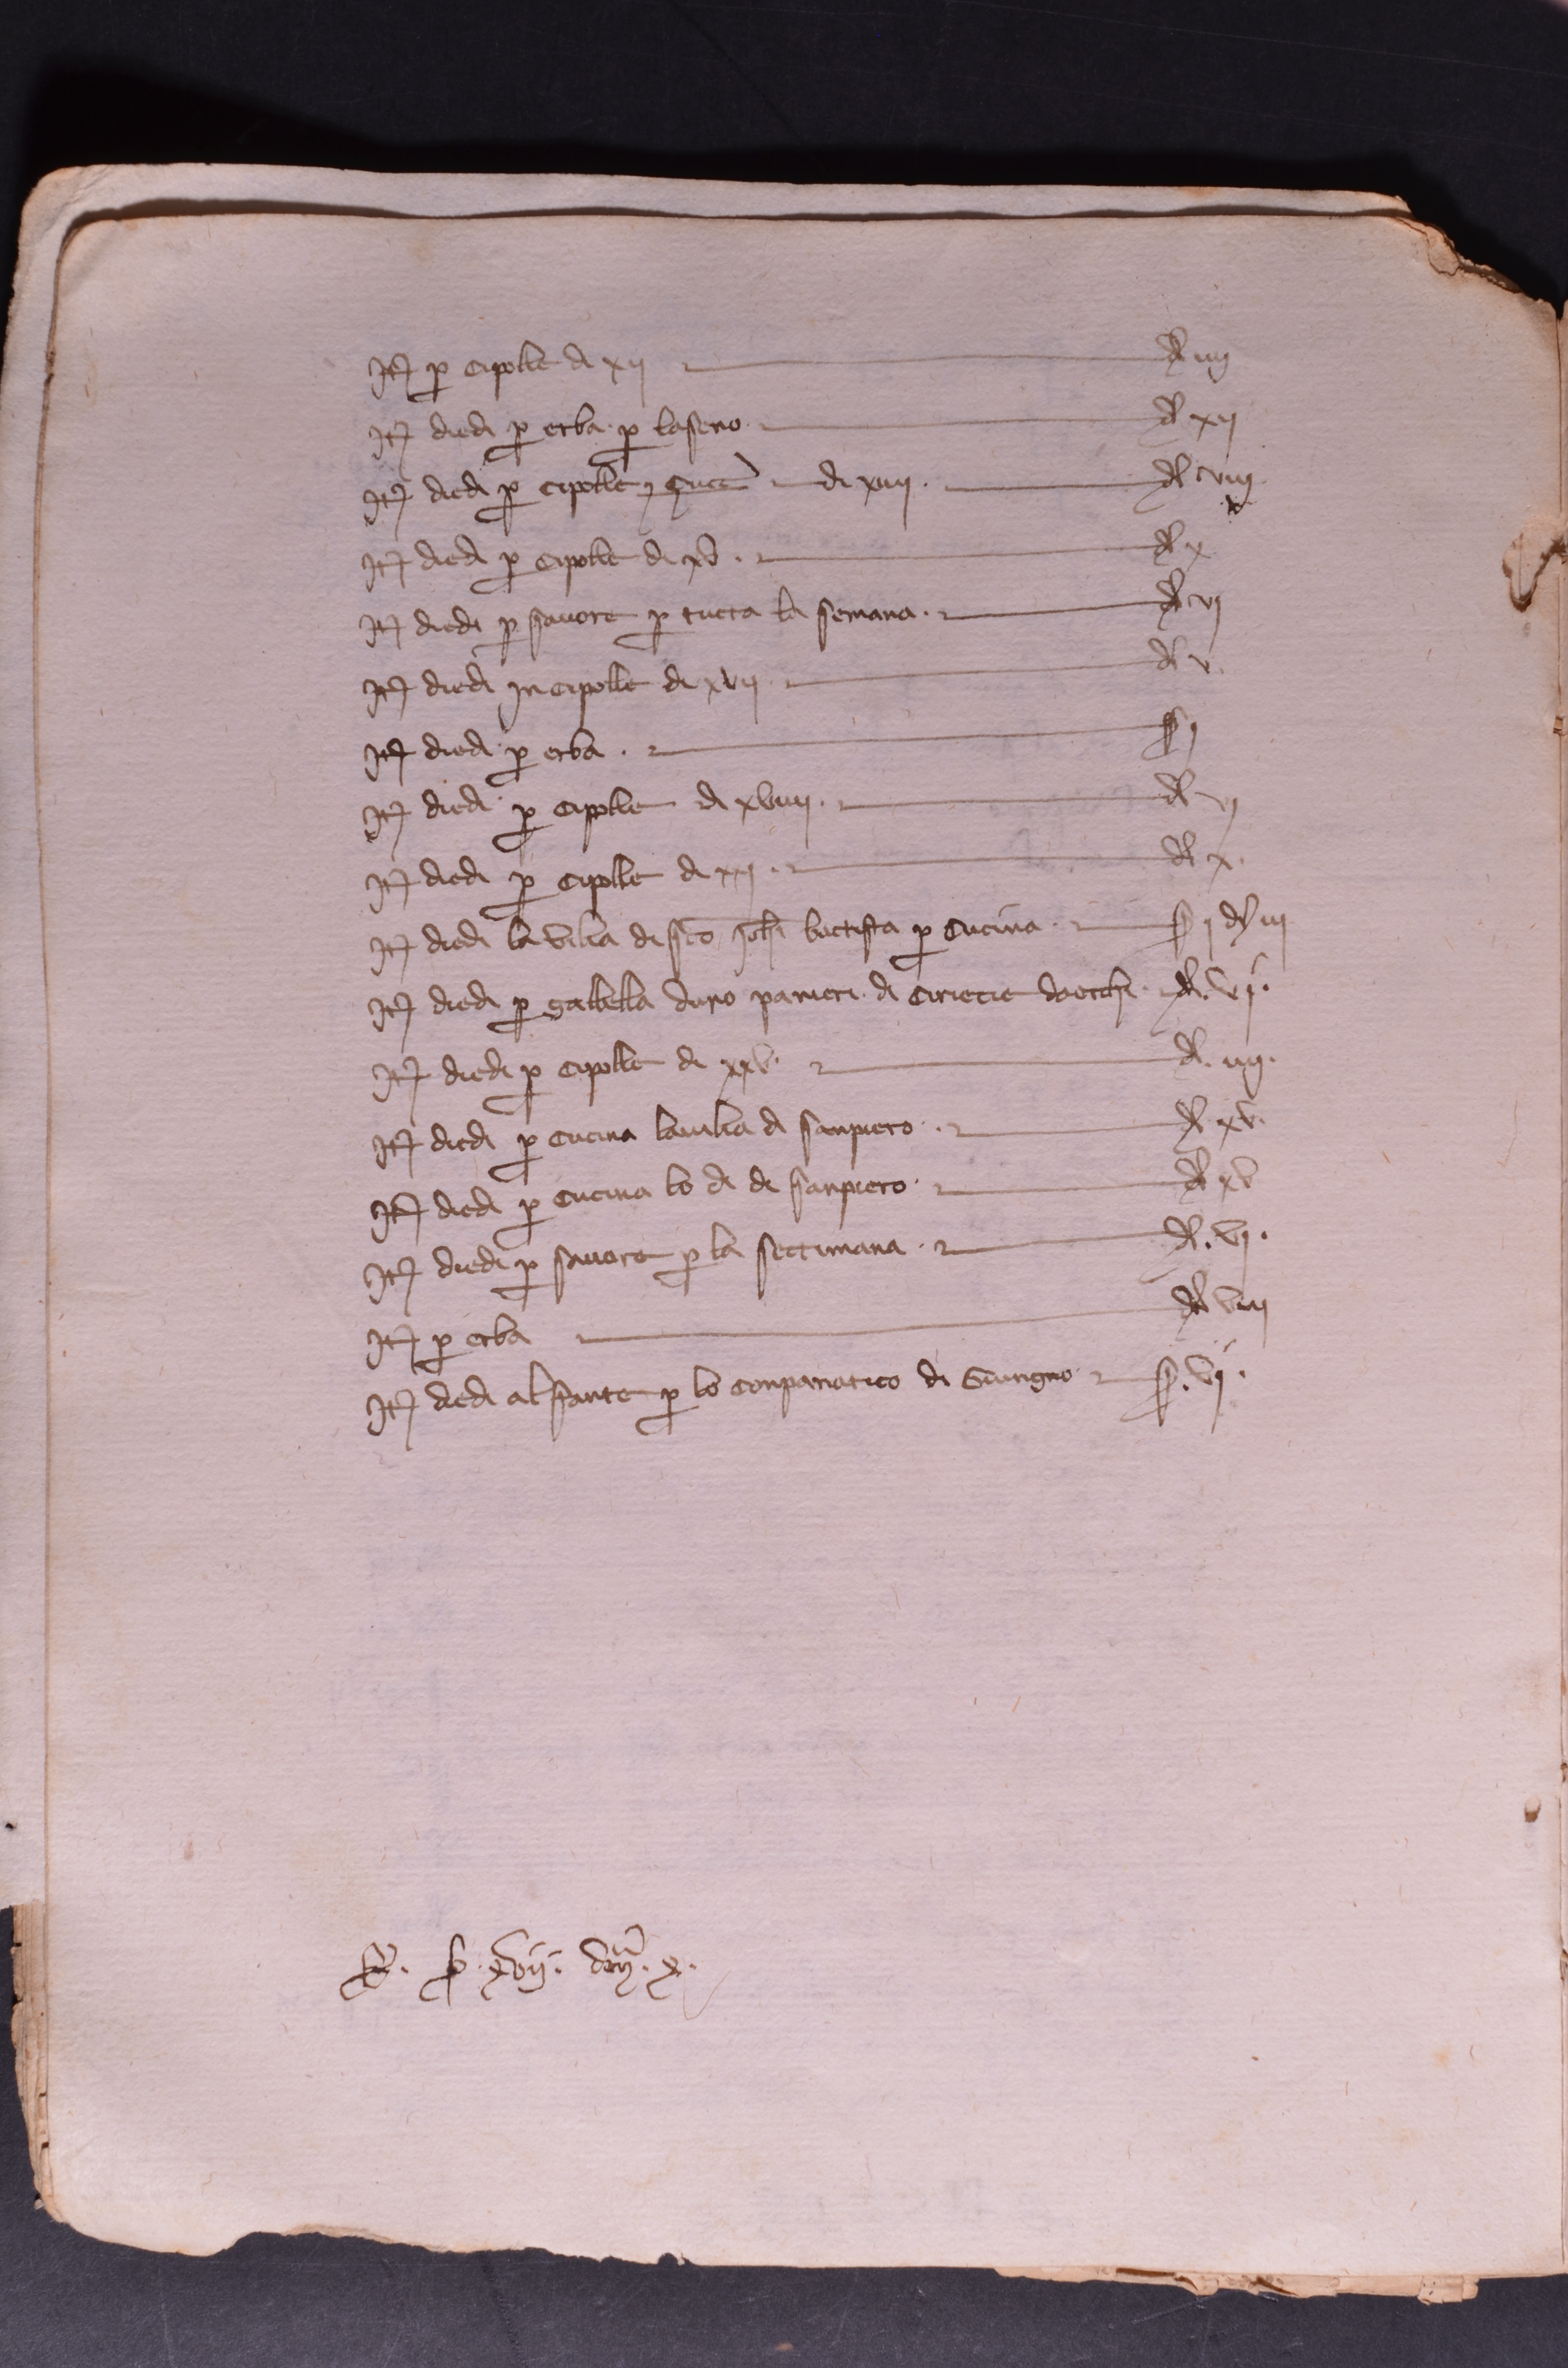 Itẽ p cipolle di xii d iiij
Itẽ diedi p erba p lasero d xii
Itẽ diedi p cipolle di xiiii d viiij
Itẽ diedi p cipolle di xv d x
Itẽ diedi p savore p tucta la semana d vi
Itẽ diedi in cipolle di xvii d v
Itẽ diedi p erba s j
Itẽ diedi p cipolle di xviiii d vi
Itẽ diedi p cipolle di xxi d x
Itẽ diedi la vilia di sco Joh batista p cucina s j d iii
Itẽ diedi p gabella duno panieri di ciriecie d vi
Itẽ diedi p cipolle di xxv d iiij
Itẽ diedi p cucina la vilia di sanpiero d xv
Itẽ diedi p cucina lo di di sanpiero d xv
Itẽ diedi p savore p la settimana d vi
Itẽ p erba d viii
Itẽ diedi al fante p lo conpanatico di Giungno s vi
s. xvii. x.